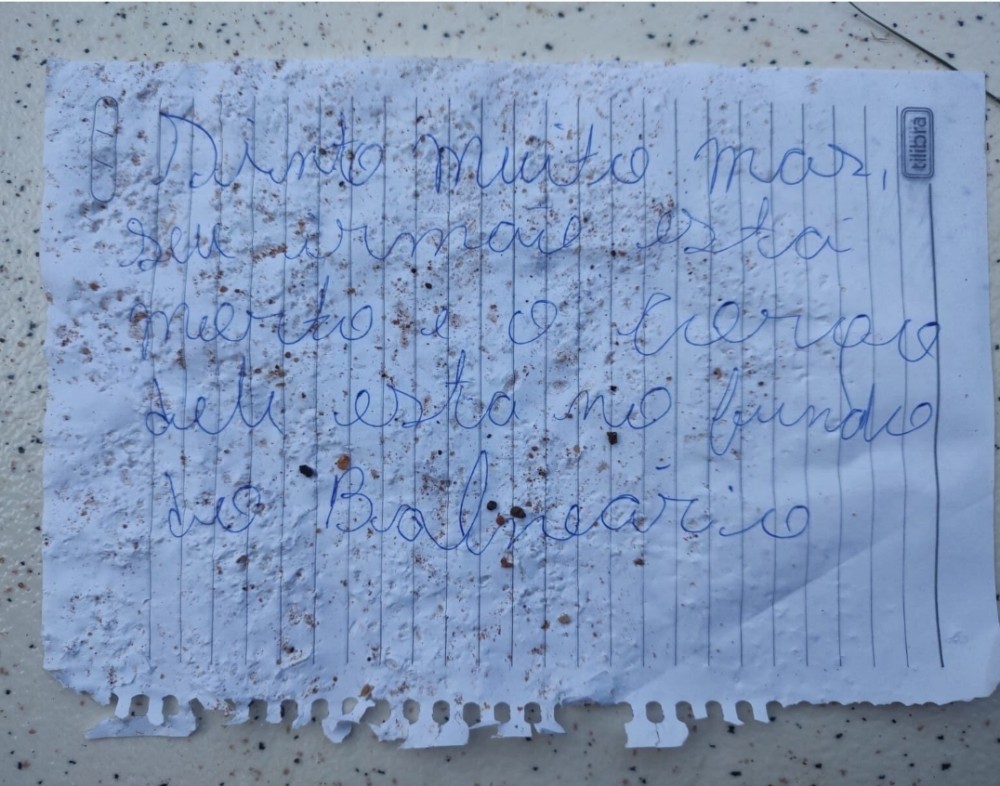 Sinto muito mas,
seu irmão está
morto e o corpo
dele está no fundo
do Balneário
tilibra